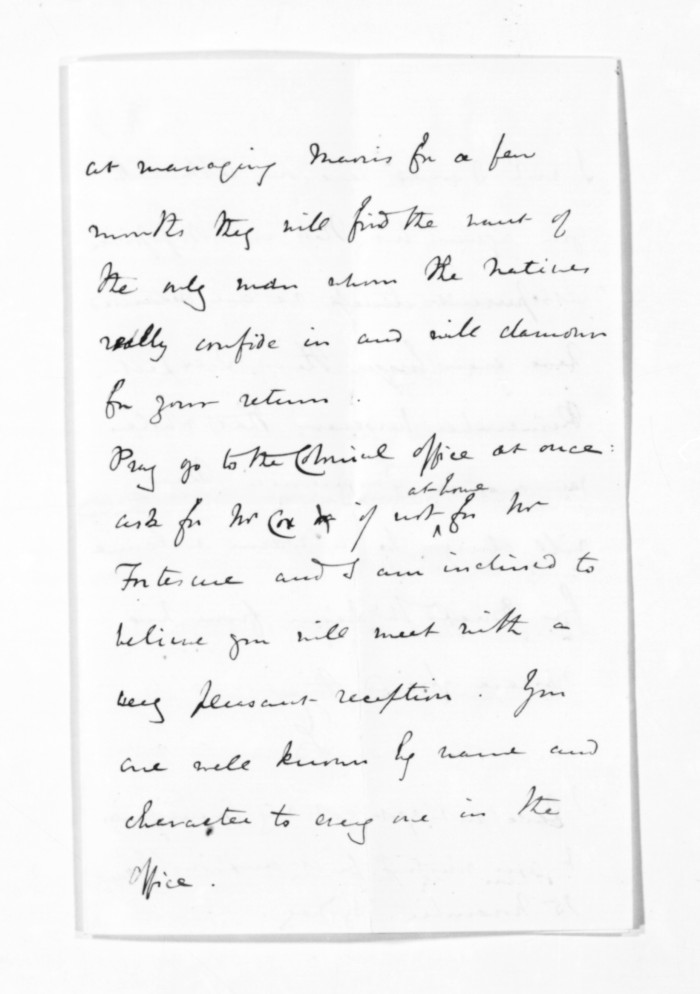 at managing Maoris for a few
months they will find the want of
the only man whom the Natives
really confide in and will clamour
for your return.
Pray go to the Colonial Office at once:
at home
ask for Mr Cox if not for Mr
Fortescue and I am inclined to
believe you will meet with a
very pleasant reception. You
are well known by name and
character to every one in the
office.